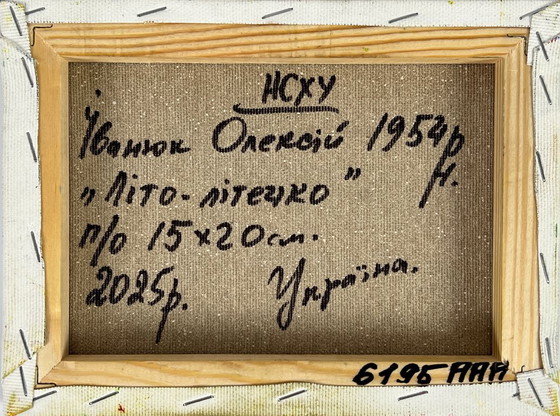 НСХУ
Іванюк Олексій 1954р
н.
„Літо-літечко"
п/о 15х20см.
2025р. Україна.
6195ААА